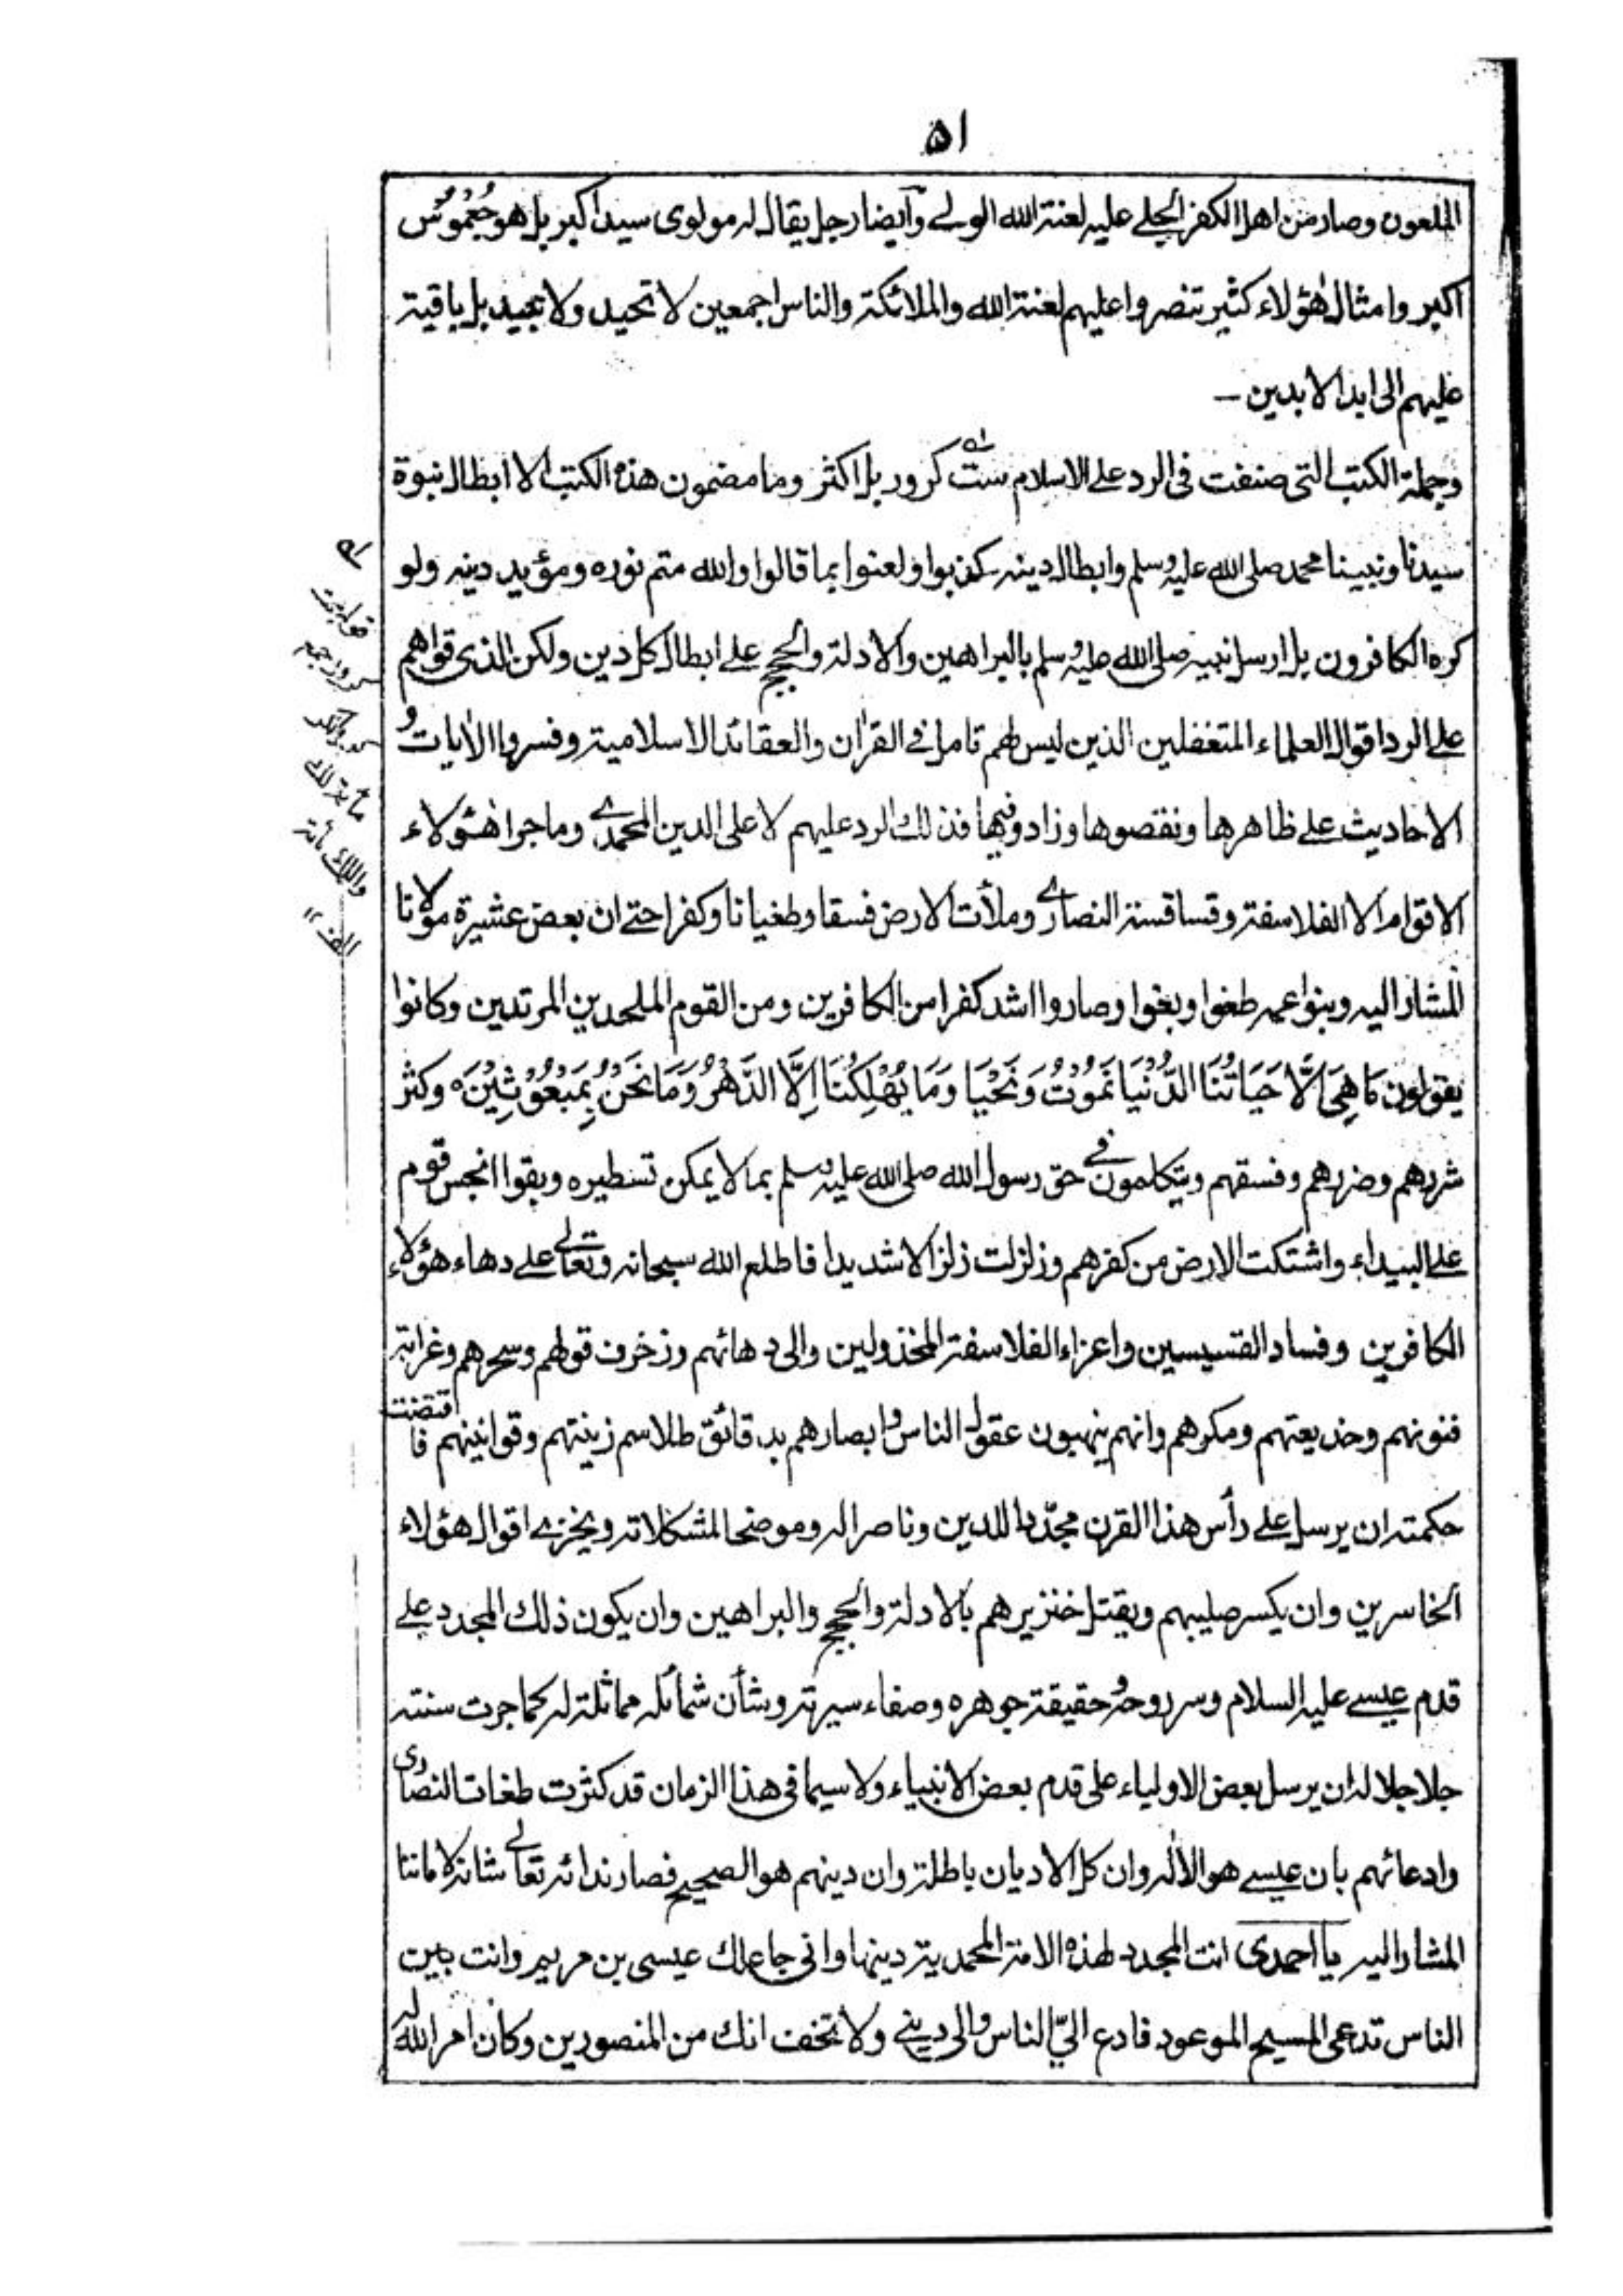 ۵۱
الملعون وصار من اهل الكفر الجلے عليه لعنة الله الولے وآيضا رجل يقال له مولوی سيد اكبر بل هو جُعْمُوْسٌ
اكبر وامثال هٰؤلاء كثير تنصروا عليهم لعنة الله والملائكة والناس اجمعين لا تحيد ولا تبيد بل باقية
عليهم الى ابد الابدين ـ
وجملة الكتب التى صنفت فى الرد علے الاسلام ست كرور بل اكثر وما مضمون هذه الكتب الا ابطال نبوة
سيدنا ونبينا محمد صلى الله عليه وسلم وابطال دينه كذبوا ولعنوا بما قالوا والله متم نوره ومؤيد دينه ولو
كره الكافرون بل ارسل نبيه صلى الله عليه وسلم بالبراهين والادلة والحجج علے ابطال كل دين ولكن الذى قواهم
علے الرد اقوال العلماء المتغفلين الذين ليس لهم تامل فے القرآن والعقائد الاسلامية وفسروا الآيات و
الاحاديث علے ظاهرها ونقصوها وزادوفيها فذلك الرد عليهم لا على الدين المحمدے وما جرا هٰؤلاء
الاقوام الا الفلاسفة وقساقسة النصارے وملأت الارض فسقا وطغيانا وكفرا حتے ان بعض عشيرة مولانا
المشار اليه وبنوا عمه طغوا وبغوا وصاروا اشد كفرا من الكافرين ومن القوم الملحدين المرتدين وكانوا
يقولون مَا هِىَ اِلَّا حَيَاتُنَا الدُّنْيَا نَمُوْتُ وَنَحْيَا وَمَا يُهْلِكُنَا اِلَّا الدَّهْرُ وَمَا نَحْنُ بِمَبْعُوْثِيْنَ ه وكثر
شرهم وضررهم وفسقهم ويتكلمون فے حق رسول الله صلى الله عليه وسلم بما لا يمكن تسطيره وبقوا انجس قوم
علے البيداء واشتكت الارض من كفرهم وزلزلت زلزالا شديدا فاطلع الله سبحانه وتعالے علے دهاء هؤلاء
الكافرين وفساد القسيسين واعزاء الفلاسفة المخذولين والى دهائهم وزخرف قولهم وسحرهم وغرابة
فنونهم وخديعتهم ومكرهم وانهم ينهبون عقول الناس وابصارهم بدقائق طلاسم زينتهم وقوانينهم فاقتضت
حكمته ان يرسل علے رأس هذا القرن مجدّدا للدين وناصرا له وموضحا لمشكلاته ويخزے اقوال هؤلاء
الخاسرين وان يكسر صليبهم ويقتل خنزيرهم بالادلة والحجج والبراهين وان يكون ذلك المجدد علے
قدم عيسے عليه السلام وسر روحه وحقيقة جوهره وصفاء سيرته وشأن شمائله مماثلة له كما جرت سنته
جلا جلاله ان يرسل بعض الاولياء على قدم بعض الانبياء ولا سيما فى هذا الزمان قد كثرت طغات النصارى
وادعائهم بان عيسے هو الاله وان كل الاديان باطلة وان دينهم هو الصحيح فصار ندائه تعالے شانه لامامنا
المشار اليه يا احمدى انت المجدد لهذه الامة المحمدية دينها وانى جاعلك عيسى بن مريم وانت بين
الناس تدعى المسيح الموعود فادع اليّ الناس والى دينے ولا تخف انك من المنصورين وكان امر الله له